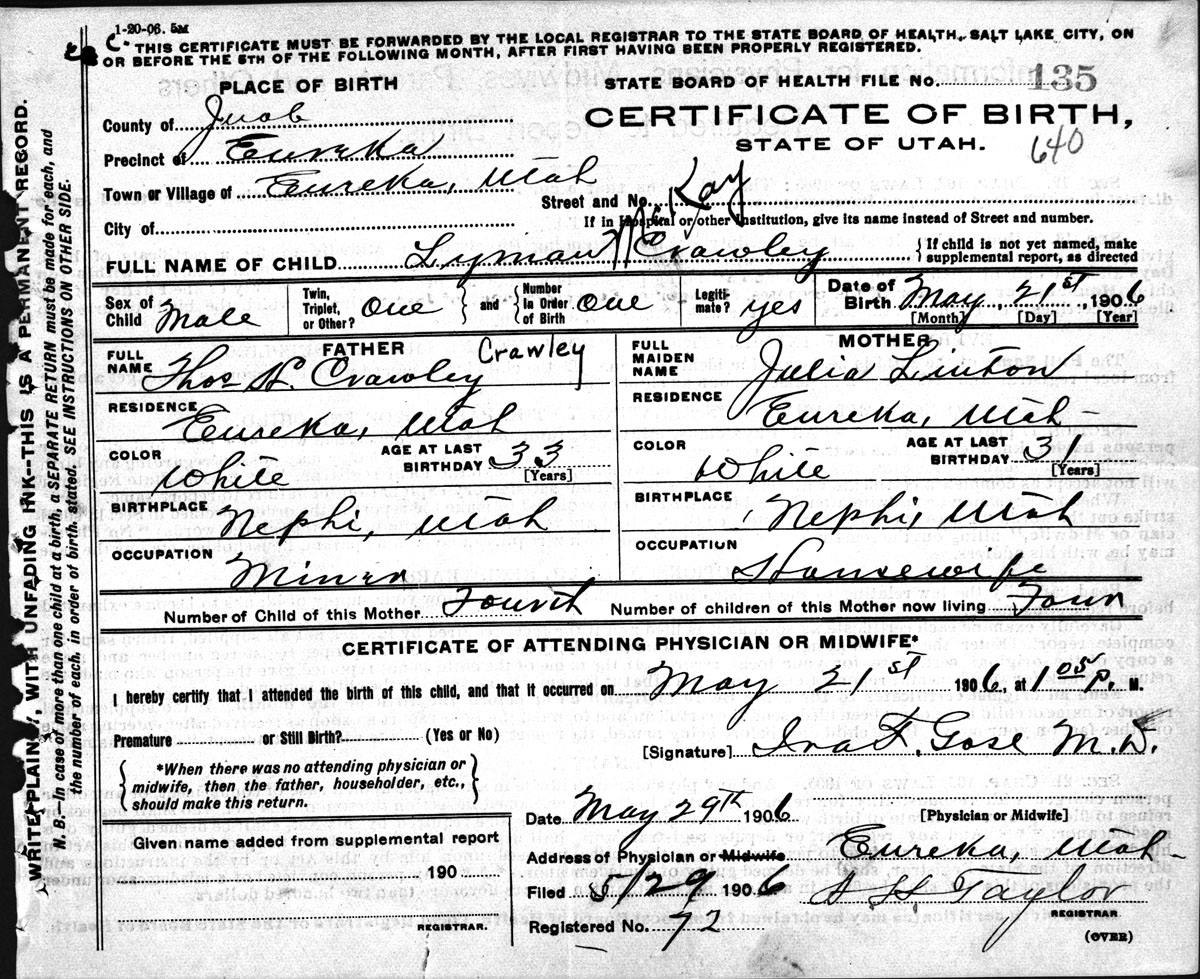 1-20-06. 5M
THIS CERTIFICATE MUST BE FORWARDED BY THE LOCAL REGISTRAR TO THE STATE BOARD OF HEALTH, SALT LAKE CITY, ON
OR BEFORE THE 5TH OF THE FOLLOWING MONTH, AFTER FIRST HAVING BEEN PROPERLY REGISTERED.
PLACE OF BIRTH
STATE BOARD OF HEALTH FILE NO. 135
CERTIFICATE OF BIRTH,
STATE OF UTAH.
640
County of Juab
Precinct of Eureka
Town or Village of Eureka, Utah
Street and No.
City of
If in Hospital or other Institution, give its name instead of Street and number.
FULL NAME OF CHILD Lyman McKay Crawley
{If child is not yet named, make
supplemental report, as directed
Sex of Child Male
Twin, Triplet, or Other? One } and { Number in Order of Birth One
Legiti-mate? yes
Date of Birth May 21st, 1906
[Month] [Day] [Year]
FATHER
FULL NAME Thos H. Crawley Crawley]
RESIDENCE Eureka, Utah
COLOR White
AGE AT LAST BIRTHDAY 33 [Years]
BIRTHPLACE Nephi, Utah
OCCUPATION Miner
MOTHER
FULL MAIDEN NAME Julia Linton
RESIDENCE Eureka, Utah-
COLOR White
AGE AT LAST BIRTHDAY 31 [Years]
BIRTHPLACE Nephi, Utah
OCCUPATION Housewife
Number of Child of this Mother Fourth Number of children of this Mother now living Four
CERTIFICATE OF ATTENDING PHYSICIAN OR MIDWIFE*
I hereby certify that I attended the birth of this child, and that it occurred on May 21st 1906, at 1 05 P. M.
Premature or Still Birth? (Yes or No)
[Signature] Ira F. Gose M.D.
{*When there was no attending physician or
midwife, then the father, householder, etc.,
should make this return.}
Date May 29th 1906
[Physician or Midwife]
Given name added from supplemental report
190
REGISTRAR.
Address of Physician or Midwife Eureka, Utah-
Filed 5/29 1906 A H Taylor
REGISTRAR
Registered No. 72
(OVER)
WRITE PLAINLY, WITH UNFADING INK--THIS IS A PERMANENT RECORD.
N. B.--In case of more than one child at a birth, a SEPARATE RETURN must be made for each, and
the number of each, in order of birth, stated. SEE INSTRUCTIONS ON OTHER SIDE.